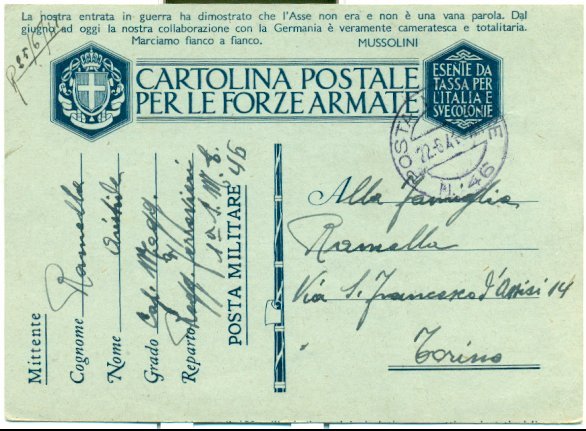 La nostra entrata in guerra ha dimostrato che l'Asse non era e non è una vana parola. Dal
giugno ad oggi la nostra collaborazione con la Germania è veramente cameratesca e totalitaria.
Marciamo fianco a fianco. MUSSOLINI
CARTOLINA POSTALE
PER LE FORZE ARMATE
ESENTE DA
TASSA PER
L'ITALIA E
SVE COLONIE
22.6.41
N. 46
Mittente
Cognome Ramella
Nome
Grado Cap. Magg.
Reparto Ferrovieri
POSTA MILITARE 46
Alla famiglia
Ramella
Via S. Francesco d'Assisi 14
Torino